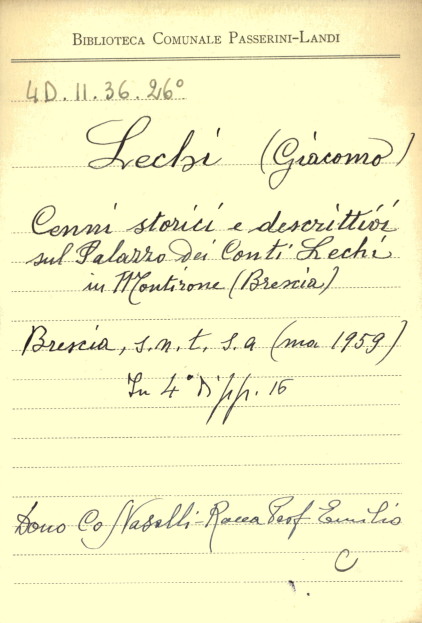 BIBLIOTECA COMUNALE PASSERINI-LANDI
4D. II. 36. 26°
Lechi (Giacomo)
Cenni storici e descrittivi
sul Palazzo dei Conti Lechi
in Montirone (Brescia)
Brescia, s.n.t., s.a (ma 1959)
In 4° di pp. 16
Dono Co Nasalli-Rocca Prof Emilio
C